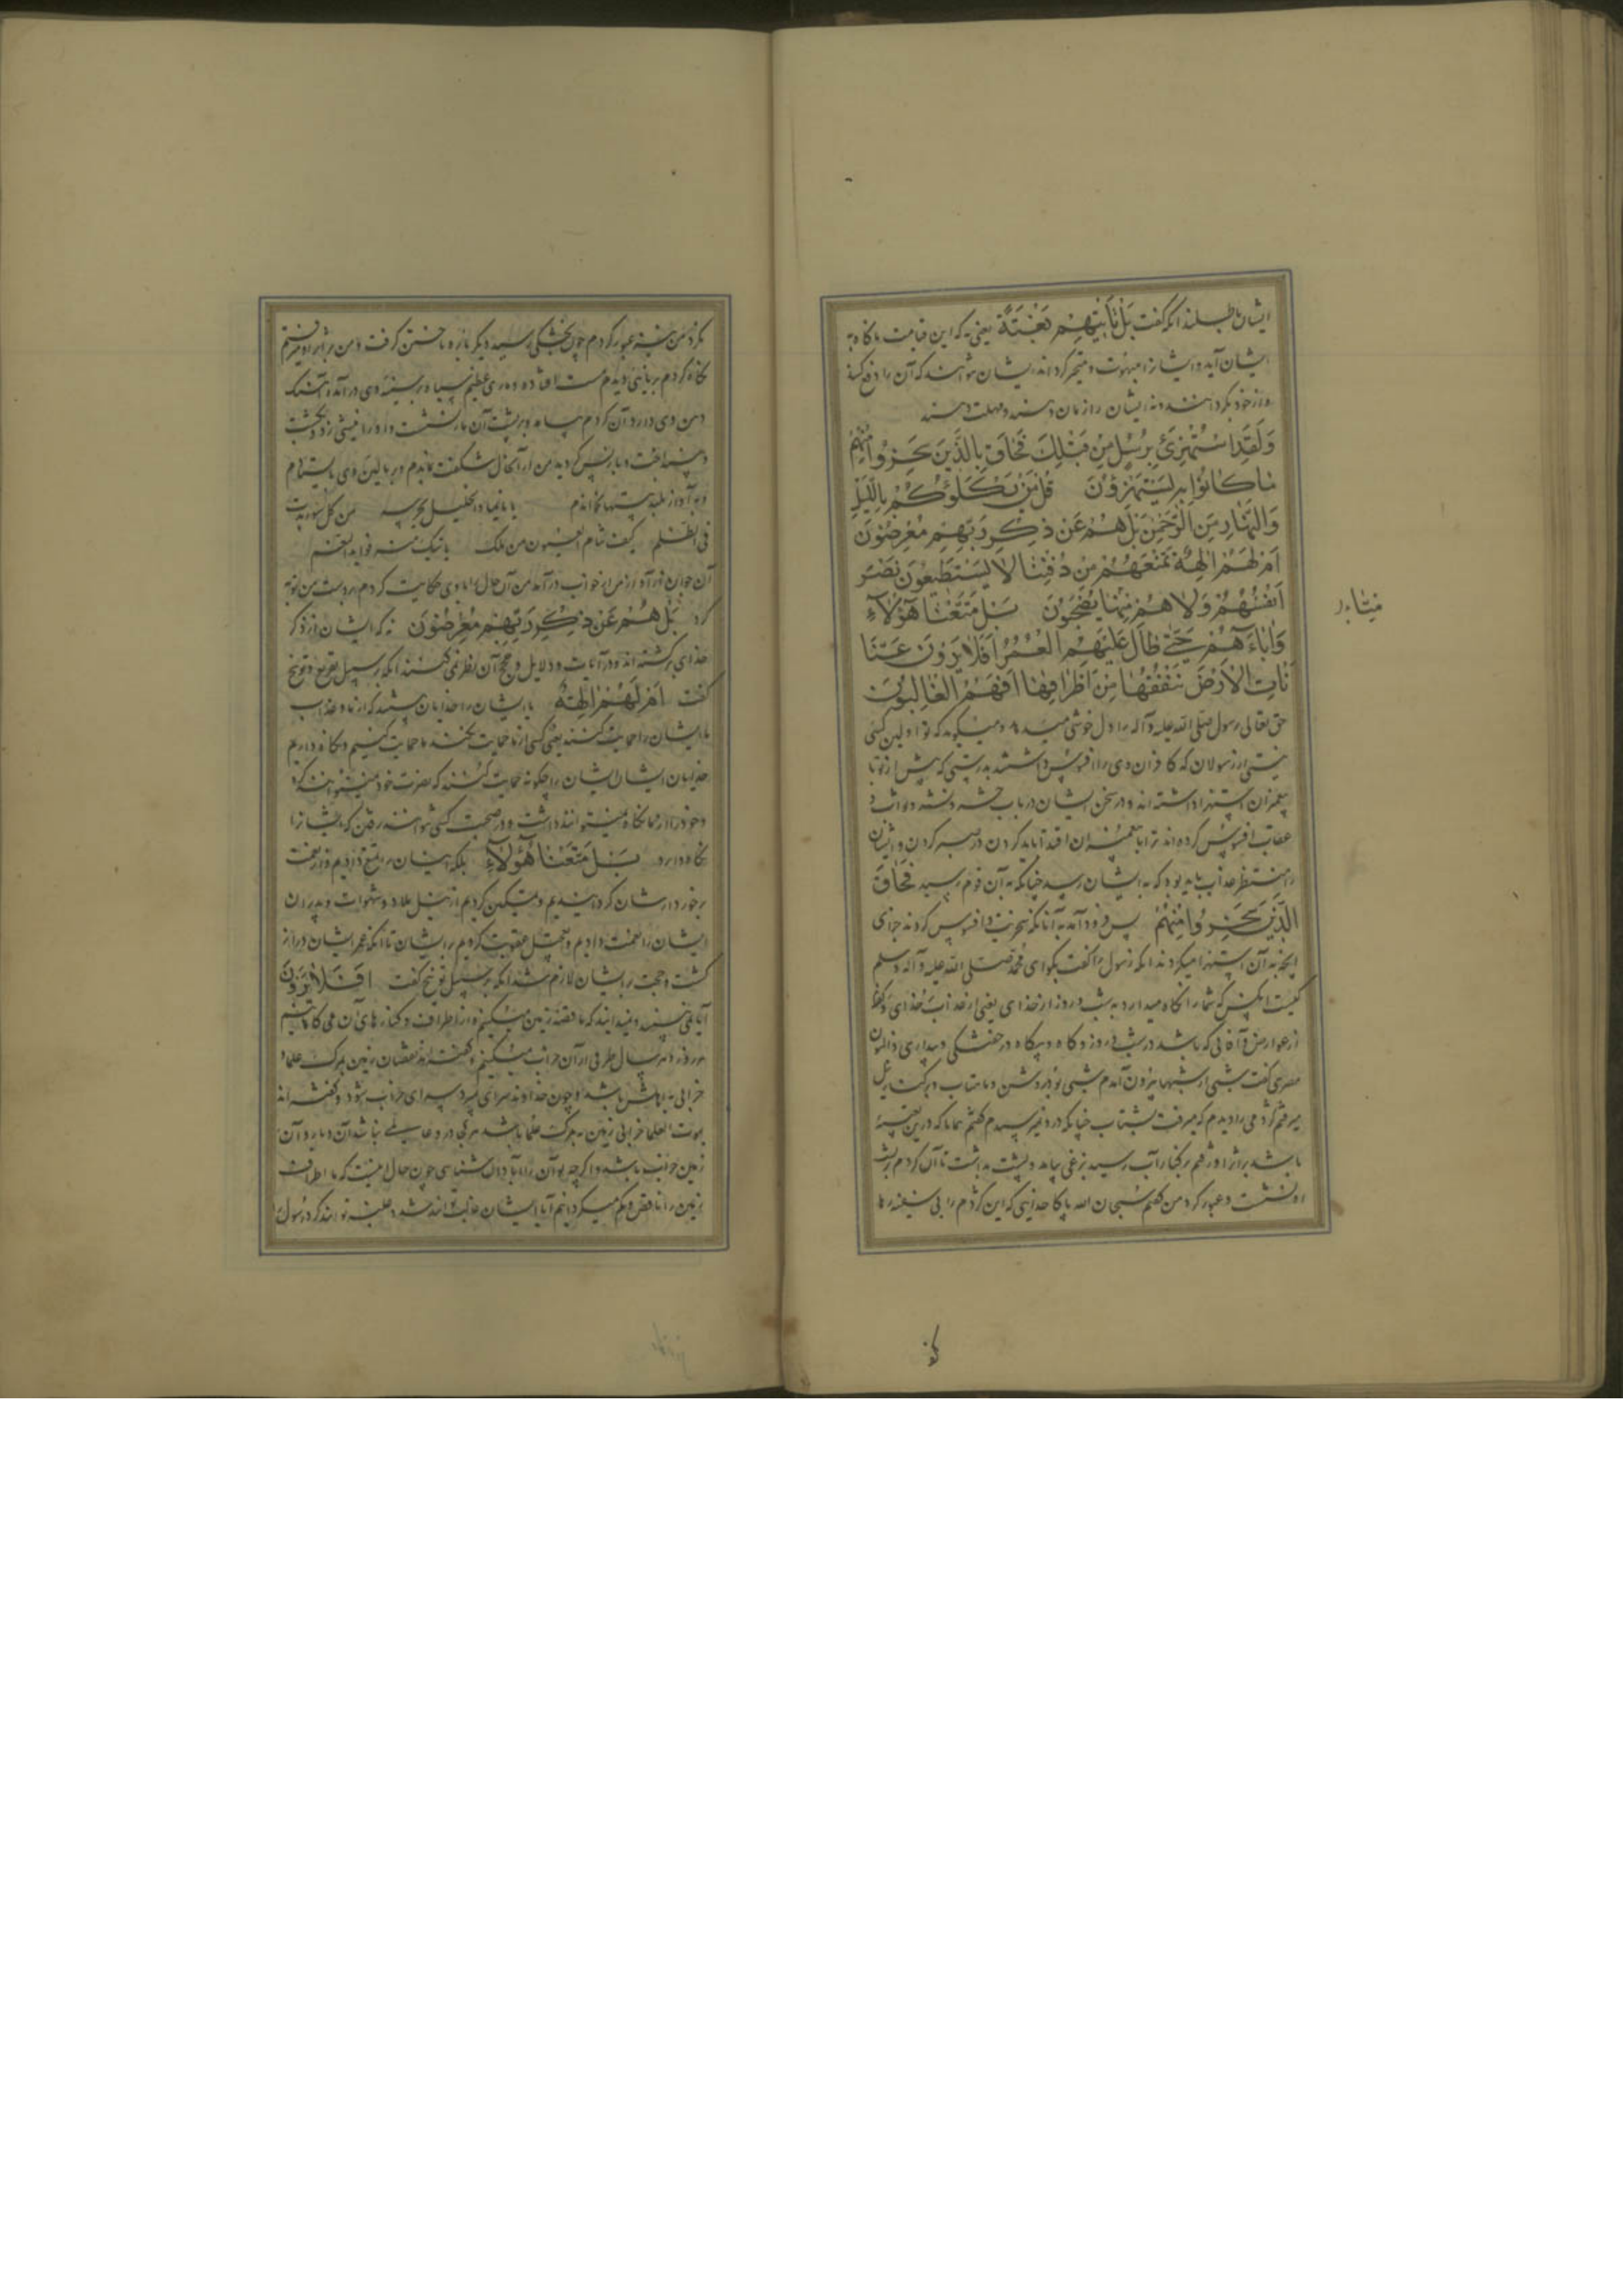 ایشان باطلند آنکه گفت بَلْ تَأْتِيهِمْ بَغْتَةً یعنی نه که این قیامت ناگاه به
ایشان آید و ایشانرا مبهوت و متحیر گرداند ایشان نتوانند که آن را دفع کنند
و از خود بگردانند و نه ایشان را زمان دهند و مهلت دهند
وَلَقَدِ اسْتُهْزِئَ بِرُسُلٍ مِنْ قَبْلِكَ فَحَاقَ بِالَّذِينَ سَخِرُوا مِنْهُمْ
مَا كَانُوا بِهِ يَسْتَهْزِؤُنَ قُلْ مَنْ يَكْلَؤُكُمْ بِاللَّيْلِ
وَالنَّهَارِ مِنَ الرَّحْمٰنِ بَلْ هُمْ عَنْ ذِكْرِ رَبِّهِمْ مُعْرِضُونَ
اَمْ لَهُمْ اٰلِهَةٌ تَمْنَعُهُمْ مِنْ دُونِنَا لَا يَسْتَطِيعُونَ نَصْرَ
اَنْفُسِهِمْ وَلَا هُمْ مِنَّا يُصْحَبُونَ بَلْ مَتَّعْنَا هٰؤُلَاءِ
وَاٰبَاءَهُمْ حَتّٰى طَالَ عَلَيْهِمُ الْعُمُرُ اَفَلَا يَرَوْنَ اَنَّا
نَأْتِي الْاَرْضَ نَنْقُصُهَا مِنْ اَطْرَافِهَا اَفَهُمُ الْغَالِبُونَ
حق تعالی رسول صلی الله علیه وآله را دل خوشی میدهد و میگوید که تو اولین کسی
نیستی از رسولان که کافران وی را افسوس داشتند بدرستی که پیش از تو با
پیغمبران استهزا داشته اند و در سخن ایشان در باب حشر و نشر و ثواب و
عقاب افسوس کرده اند ترا با پیغمبران اقتدا باید کردن در صبر کردن و ایشان
را منتظر عذاب باید بود که به ایشان رسد چنانکه به آن قوم رسید فَحَاقَ
الَّذِينَ سَخِرُوا مِنْهُمْ پس فرود آمد به آنانکه سخریت و افسوس کردند جزای
آنچه به آن استهزا میکردند آنکه رسول را گفت بگو ای محمد صلی الله علیه وآله وسلم
کیست آنکس که شما را نگاه میدارد به شب و روز از خدای یعنی از عذاب خدای و
از عوارض و آفاتی که باشد در شب و روز و گاه و بیگاه در خفتگی و بیداری ذالنون
مصری گفت شبی از شبها بیرون آمدم شبی بود روشن و ماهتاب و برکنار نیل
میرفتم کژدمی را دیدم که میرفت بشتاب چنانکه در وی نمیرسیدم گفتم همانا که درین تعبیه
باشد بر اثر او رفتم بر کنار آب رسید بزغی بیامد و پشت بداشت تا آن کژدم بر پشت
او نشست و عبور کرد من گفتم سبحان الله پاکا خدایی که این کژدم را بی سفینه رها
نکرد من نیز عبور کردم چون بخشکی رسید دیگر باره تاختن گرفت و من بر اثر او میرفتم
نگاه کردم برنایی دیدم مست افتاده و ماری عظیم سیاه بر سینه وی در آمده آهنگ
دهن وی دارد آن کژدم بیامد و بر پشت آن مار نشست و او را نیشی زد و بکشت
و بینداخت و باز پس گردید من از آن حال شگفت بماندم و بر بالین وی بایستادم
و به آواز بلند بیتها بخواندم یا نائما والجلیل یحرسه من کل سوء یدب
فی الظلم کیف تنام العیون من ملک یأتیک منه فواید النعم
آن جوان به آواز من از خواب درآمد من آن حال را با وی حکایت کردم بر دست من توبه
کرد بَلْ هُمْ عَنْ ذِكْرِ رَبِّهِمْ مُعْرِضُونَ نه که ایشان از ذکر
خدای برگشته اند و در آیات و دلایل و حجج آن نظر نمی کنند آنکه بر سبیل تقریع و توبیخ
گفت اَمْ لَهُمْ اٰلِهَةٌ یا ایشان را خدایان هستند که از ما و عذاب
ما ایشان را حمایت کنند یعنی کسی از ما حمایت نکند ما حمایت کنیم و نگاه داریم
خدایان ایشان ایشان را چگونه حمایت کنند که نصرت خود نمیتوانند کرد
و خود را از ما نگاه نمیتوانند داشت و در صحبت کسی نتوانند رفتن که ایشانرا
نگاه دارد بَلْ مَتَّعْنَا هٰؤُلَاءِ بلکه ایشان را تمتع دادیم و از نعمت
برخوردارشان گردانیدیم و تمکین کردیم از نیل ملاذ و شهوات و پدران
ایشان را نعمت دادیم و تعجیل عقوبت نکردیم بر ایشان تا آنکه عمر ایشان دراز
گشت و حجت بر ایشان لازم شد آنکه بر سبیل توبیخ گفت اَفَلَا يَرَوْنَ
آیا نمی بینند و نمیدانند که ما قصد زمین میکنیم و از اطراف و کنارهای آن می کاهیم
هر روز و هر سال طرفی از آن خراب میکنیم و گفته اند نقصان زمین بمرگ علما و
خرابی به اهلش باشد و چون خداوند سرای بمیرد سرای خراب شود و گفته اند
بموت العلما خرابی زمین به مرگ علما باشد هر کجا در وی عالمی نباشد آن دیار و آن
زمین خراب باشد و اگر چه تو آن را آبادان شناسی چون حال اینست که ما اطراف
زمین را ناقص و کم میگردانیم آیا ایشان غالب توانند شد و غلبه توانند کرد رسول